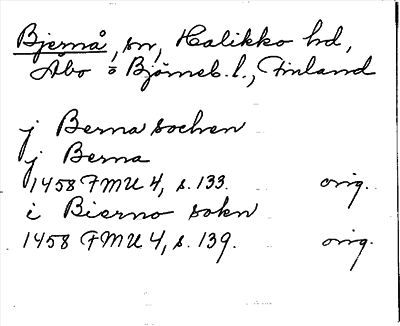 Bjernå, sn, Halikko hd,
Åbo o Björneb. l., Finland
j Berna sochen
j Berna
1458 FMU 4, s. 133. orig.
i Bierno sokn
1458 FMU 4, s. 139. orig.